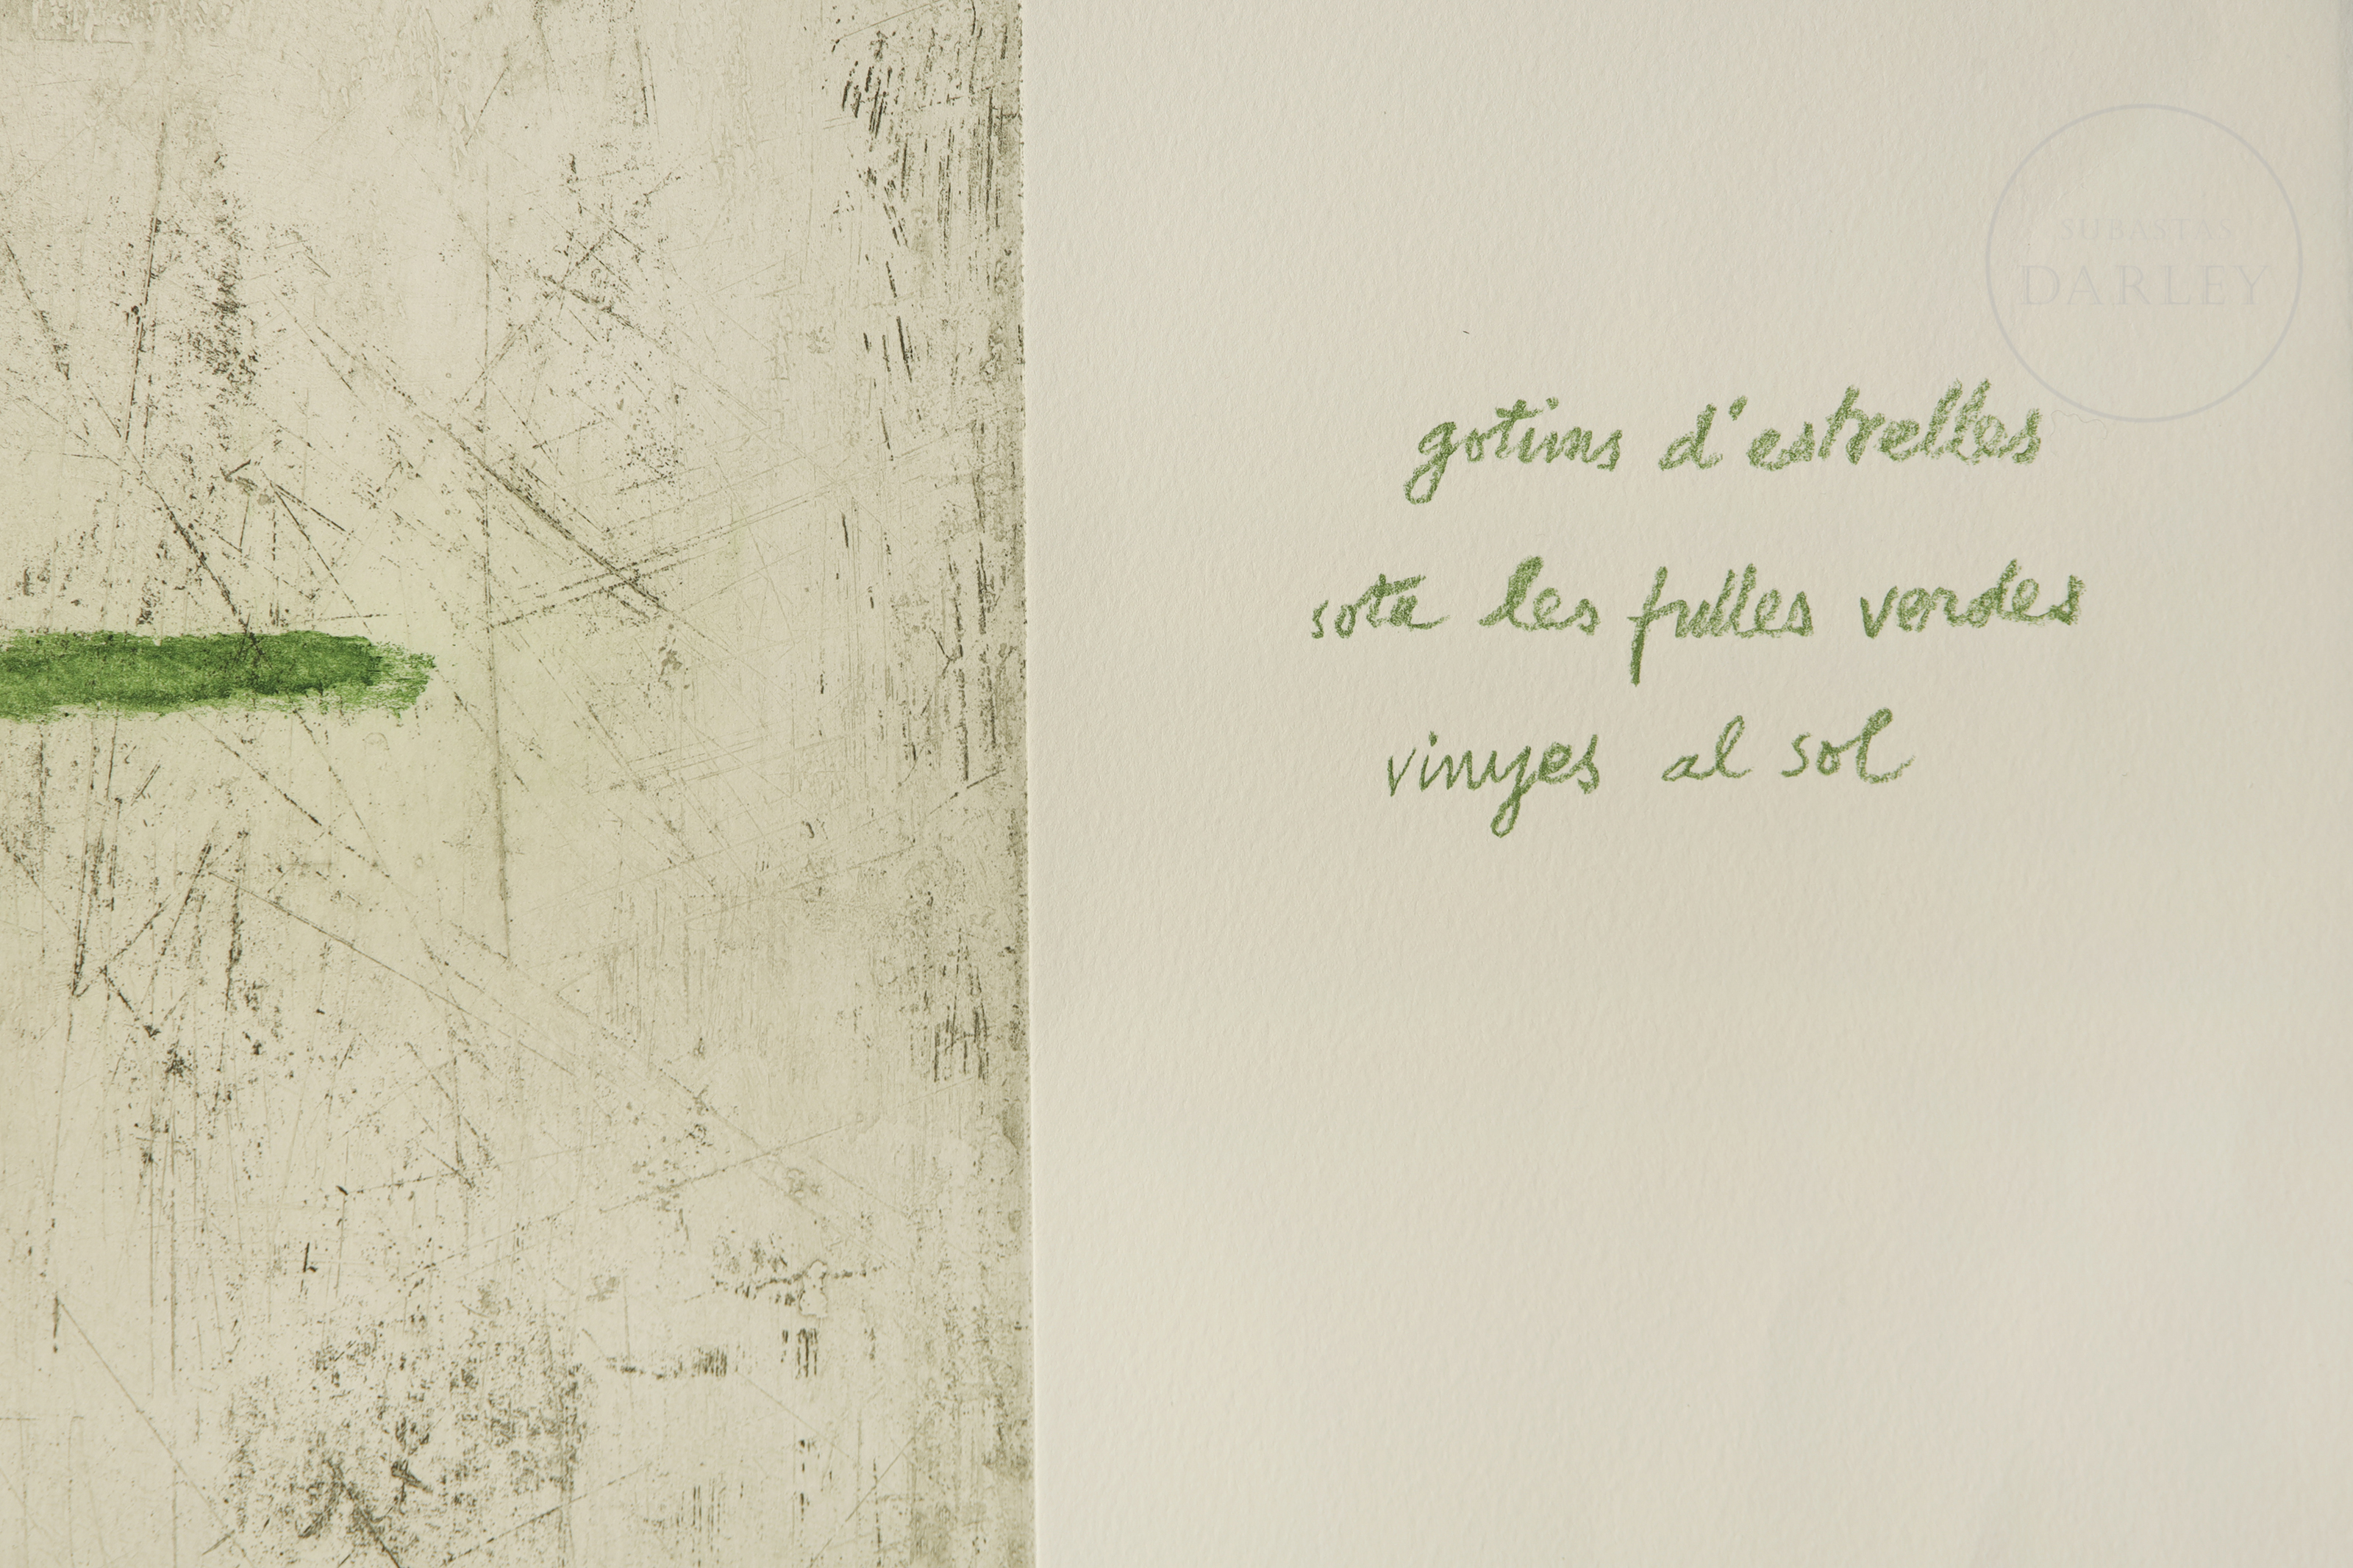 SUBASTAS
DARLEY
gotims d'estrelles
sota les fulles verdes
vinyes al sol